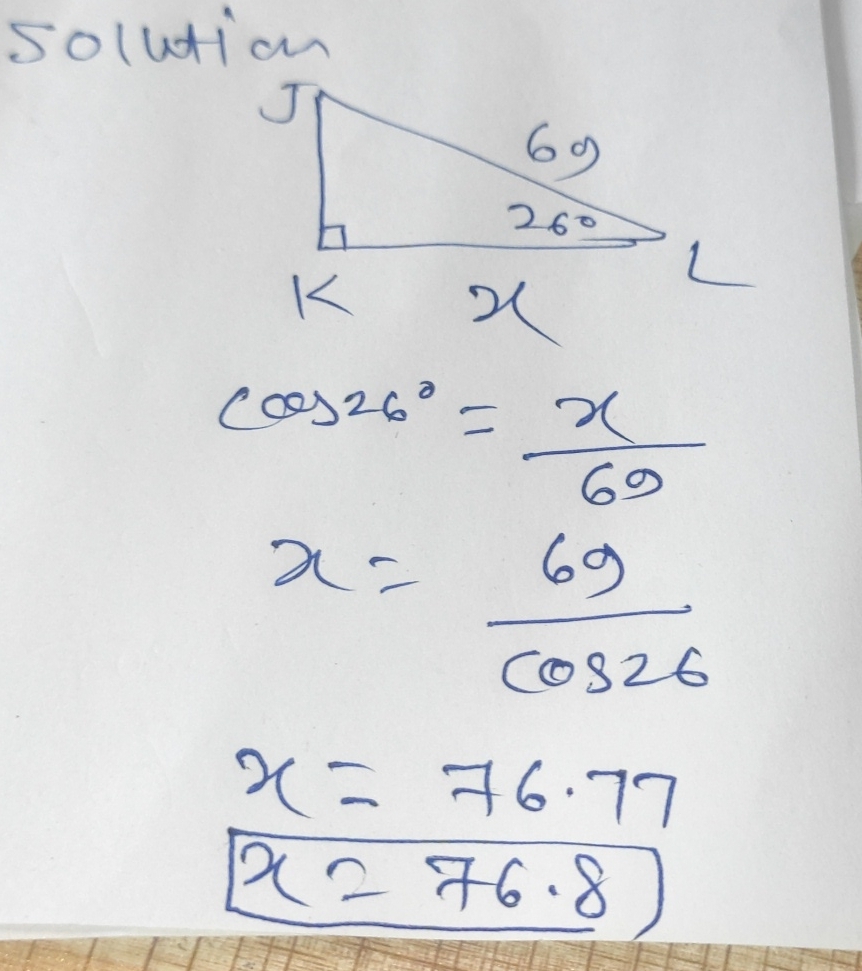 Solution
J
69
26°
K x L
cos26° = x
69
x = 69
cos26
x = 76.77
x = 76.8